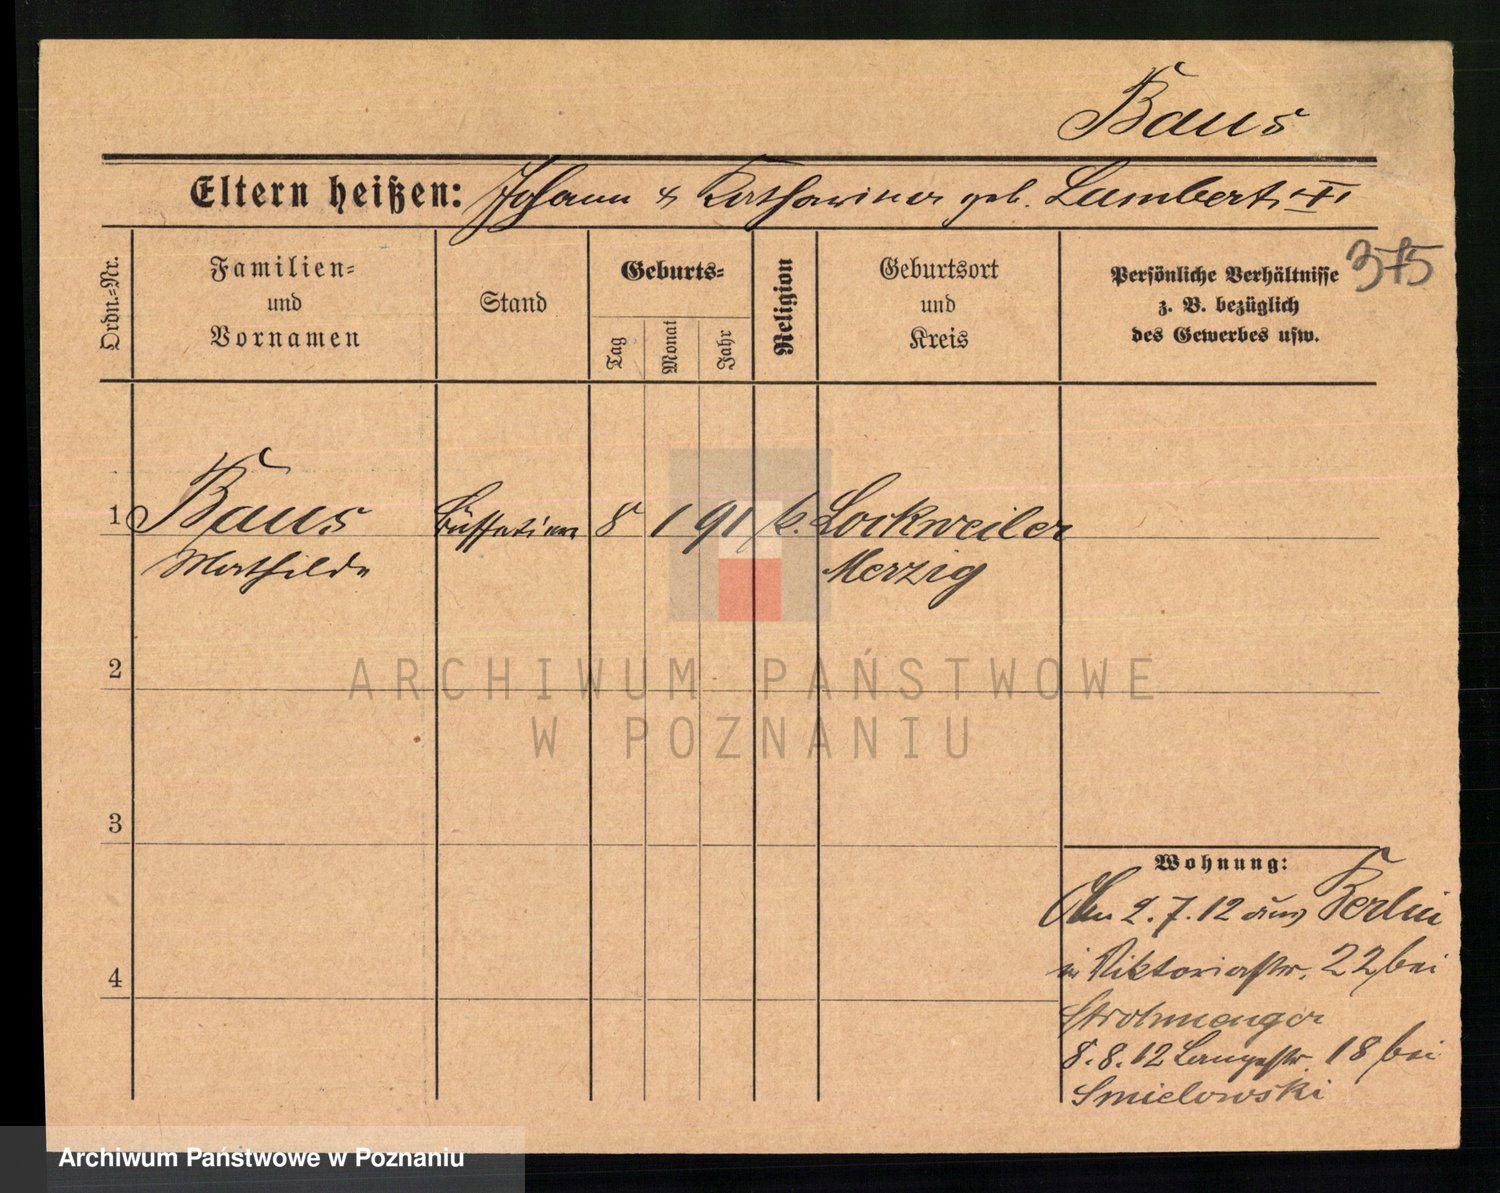 Baus
Eltern heißen: Johann & Katharina geb. Lambert.
375
Ordn.=Nr.
Familien=
und
Vornamen
Stand
Geburts=
Tag
Monat
Jahr
Religion
Geburtsort
und
Kreis
Persönliche Verhältnisse
z. B. bezüglich
des Gewerbes usw.
1 Baus Büffetiere 8 1 91 k. Lockweiler
Mathilde Merzig
2
3
4
Wohnung:
An 2.7.12 aus Berlin
in Viktoriastr. 22 bei
Strohmenger
8.8.12 Langestr. 18 bei
Smielowski
ARCHIWUM PAŃSTWOWE
W POZNANIU
Archiwum Państwowe w Poznaniu